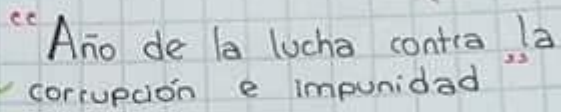 "Año de la lucha contra la
corrupción e impunidad"